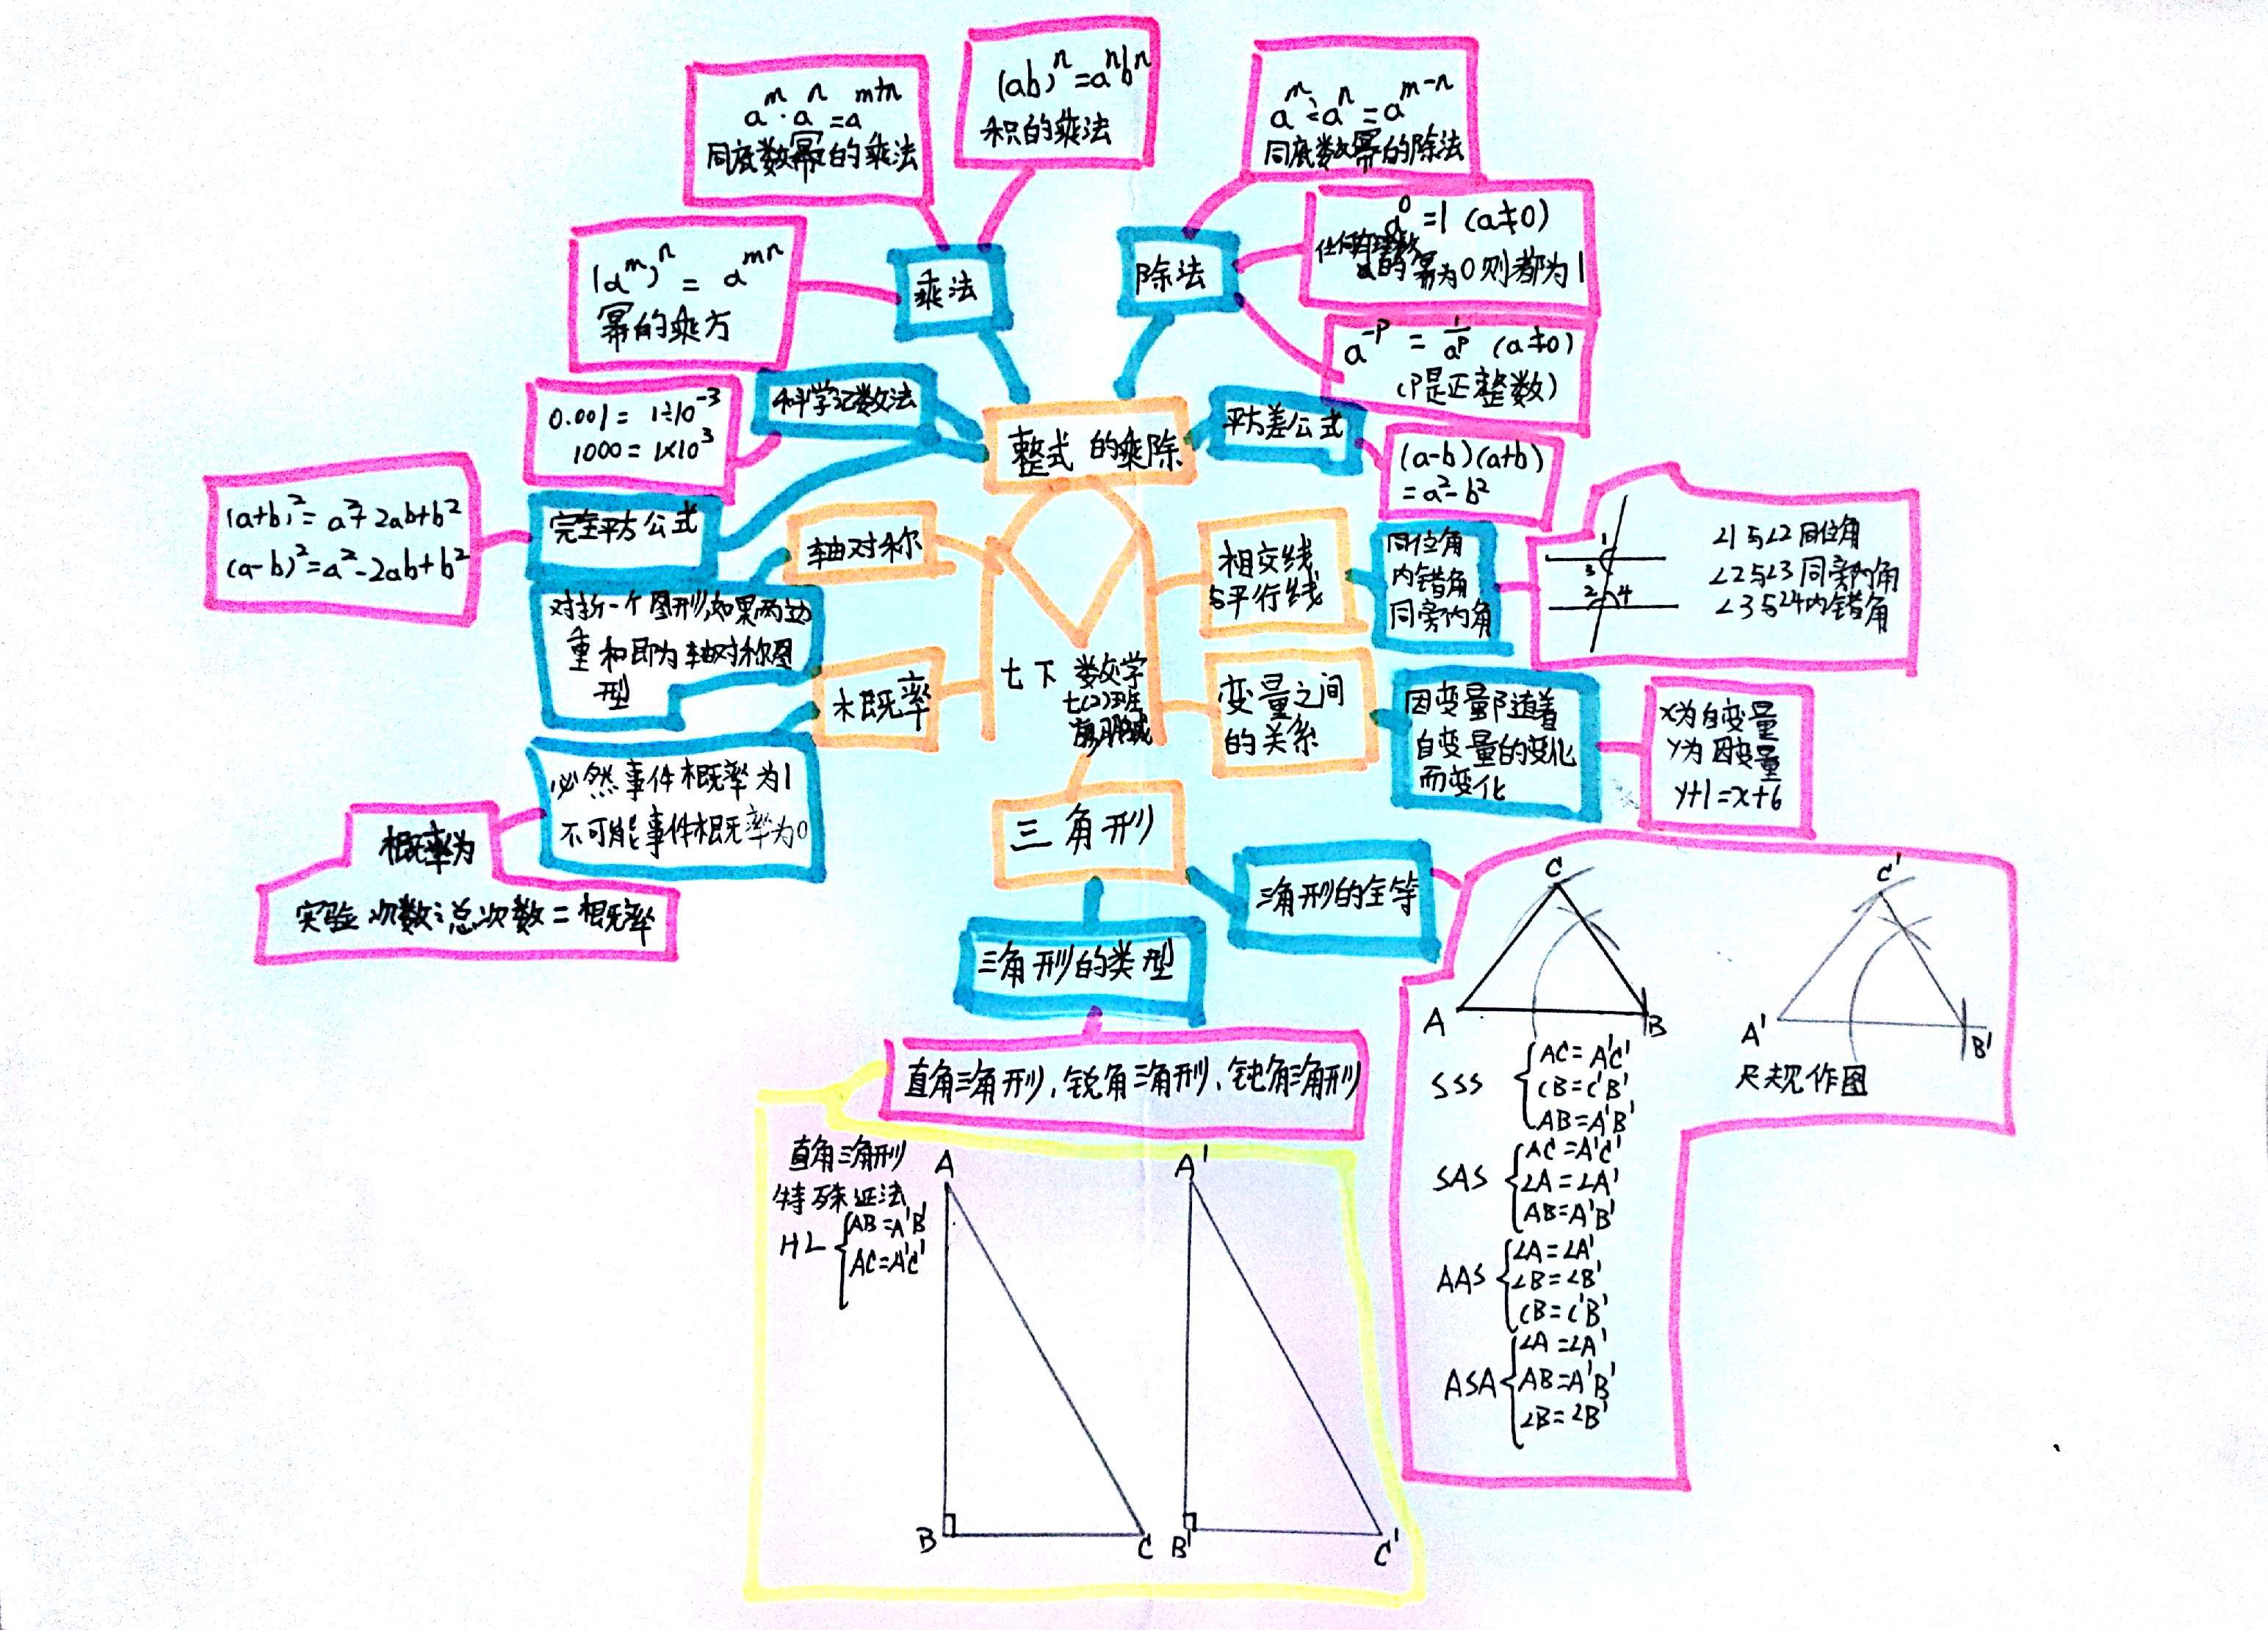 aᵐ·aⁿ=aᵐ⁺ⁿ
同底数幂的乘法
(ab)ⁿ=aⁿbⁿ
积的乘法
aᵐ÷aⁿ=aᵐ⁻ⁿ
同底数幂的除法
(aᵐ)ⁿ=aᵐⁿ
幂的乘方
乘法
除法
a⁰=1 (a≠0)
任何有理数
a的幂为0则都为1
a⁻ᵖ=1/aᵖ (a≠0)
(P是正整数)
0.001=1÷10⁻³
1000=1×10³
科学记数法
整式的乘除
平方差公式
(a-b)(a+b)
=a²-b²
(a+b)²=a²+2ab+b²
(a-b)²=a²-2ab+b²
完全平方公式
轴对称
对折一个图形,如果两边
重和即为轴对称图
型
相交线
与平行线
同位角
内错角
同旁内角
1
3
2 4
∠1与∠2同位角
∠2与∠3同旁内角
∠3与∠4内错角
七下 数学
七(2)班
概率
必然事件概率为1
不可能事件概率为0
概率为
实验次数÷总次数=概率
变量之间
的关系
因变量随着
自变量的变化
而变化
x为自变量
y为因变量
y+1=x+6
三角形
三角形的全等
三角形的类型
直角三角形,锐角三角形,钝角三角形
C
A
B
C'
A'
B'
尺规作图
SSS
AC=A'C'
CB=C'B'
AB=A'B'
SAS
AC=A'C'
∠A=∠A'
AB=A'B'
AAS
∠A=∠A'
∠B=∠B'
CB=C'B'
ASA
∠A=∠A'
AB=A'B'
∠B=∠B'
直角三角形
特殊证法
HL
AB=A'B'
AC=A'C'
A
B
C
A'
B'
C'